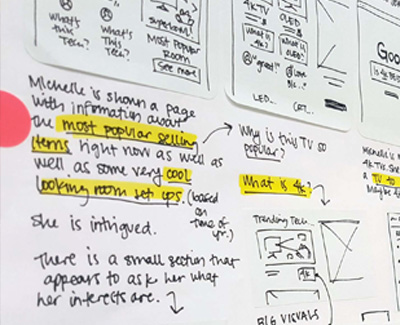 What's this Tech?
What's This Tech?
Superbowl!
Most Popular Room
See more
4K TV
OLED
What is 4K?
What is
"great!"
LED...
Goo
Is 4K
Michelle is shown a page
with information about
the most popular selling
items right now as well as
well as some very cool
looking room set ups. (based
on
time of
yr.)
She is intrigued.
There is a small section that
appears to ask her what
her interests are.
Why is this TV so
popular?
What is 4K?
Trending Tech
4K
BIG VISUALS
Michelle is n
4K TVs. She
a TV to
Maybe